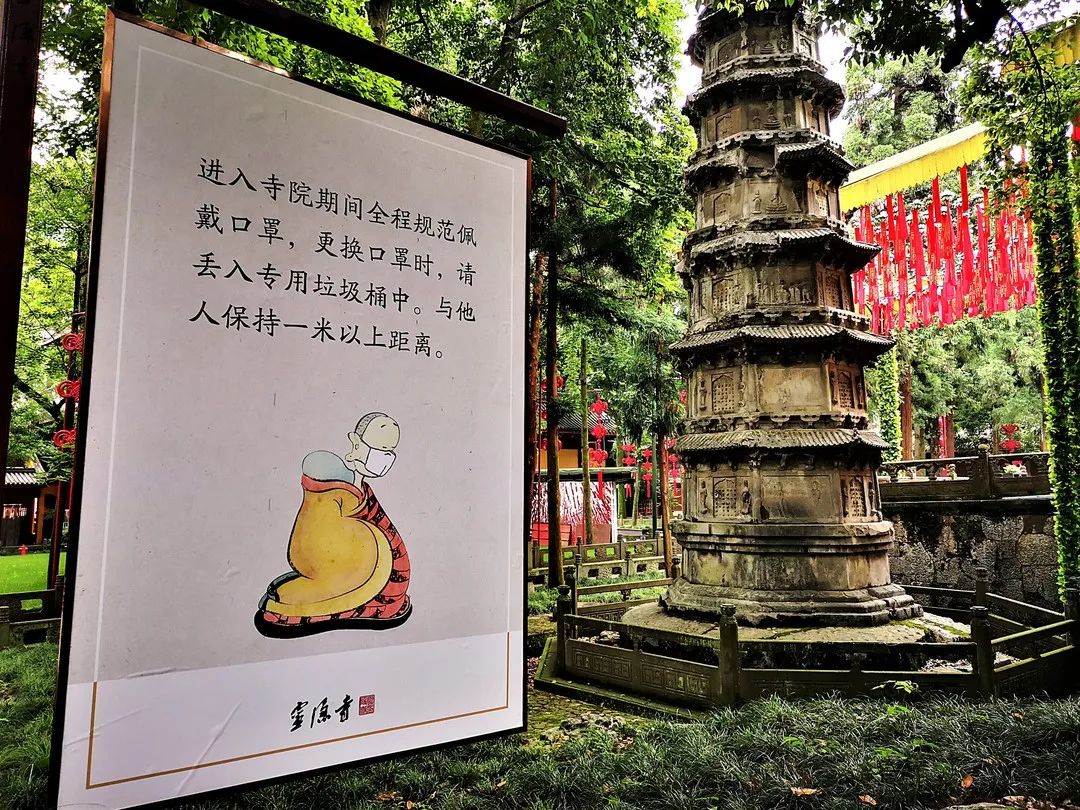 进入寺院期间全程规范佩
戴口罩，更换口罩时，请
丢入专用垃圾桶中。与他
人保持一米以上距离。
靈隱寺